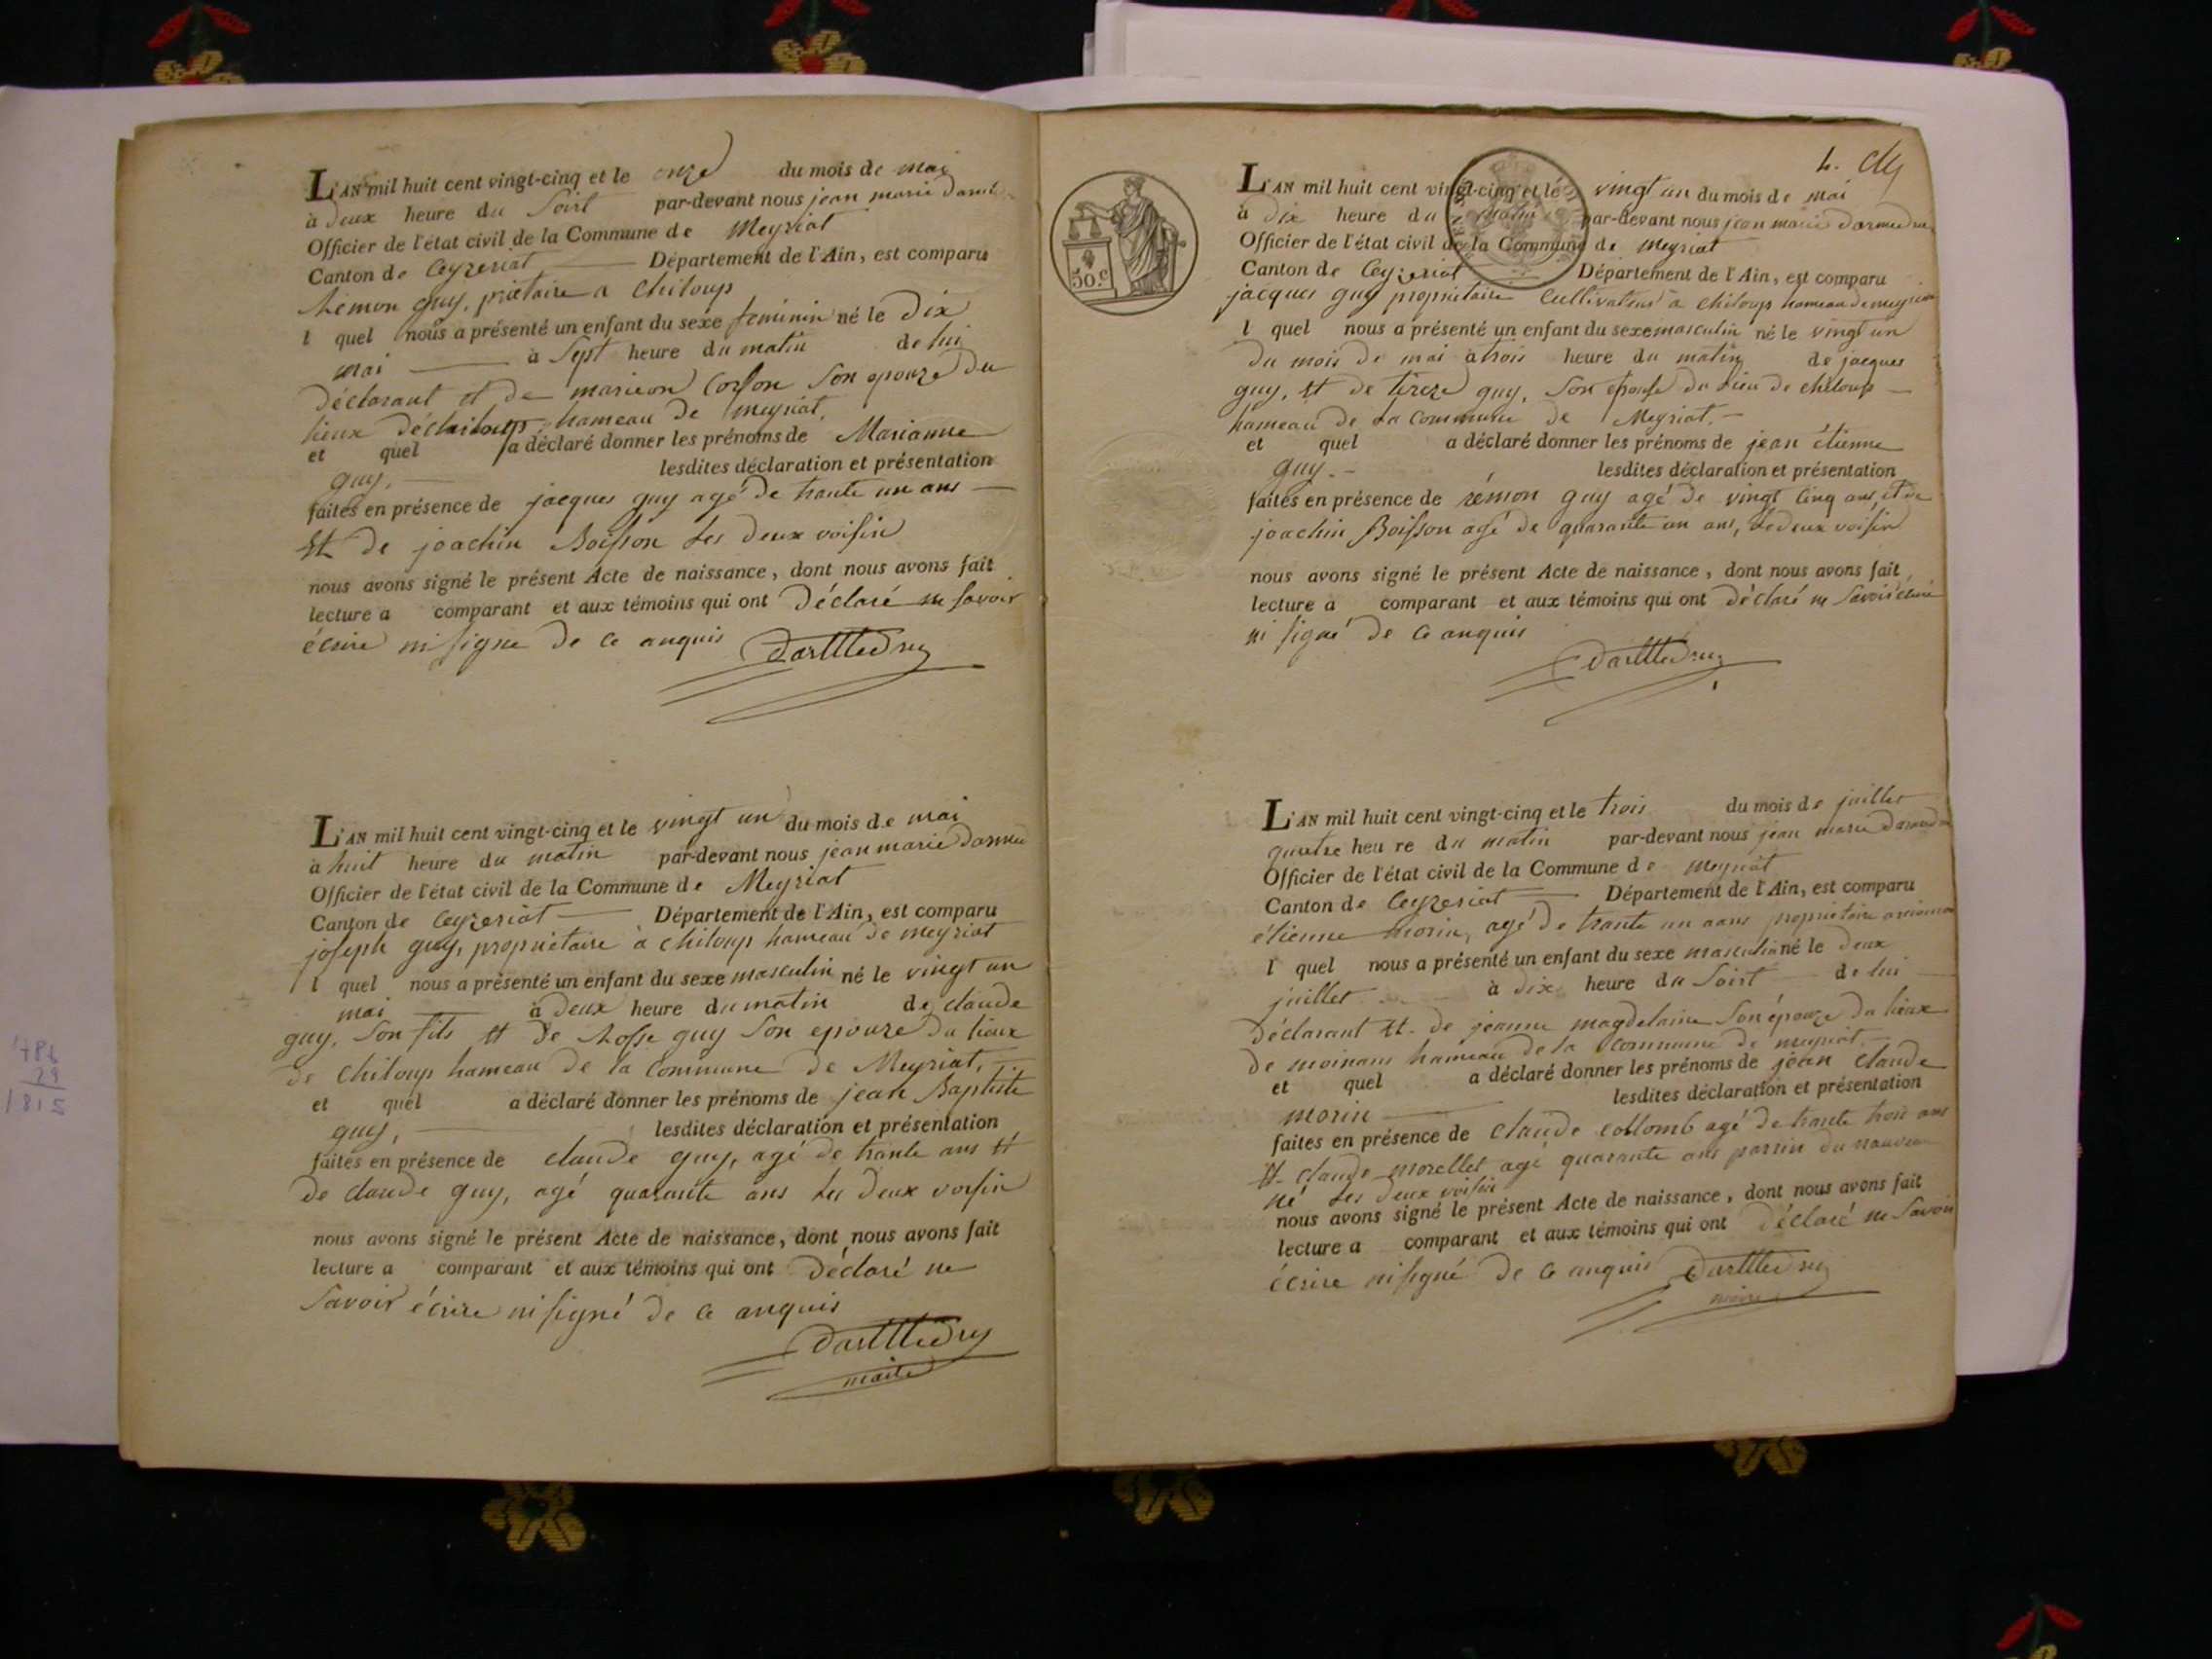 L'AN mil huit cent vingt-cinq et le onze du mois de mai
à deux heure du Soirt par-devant nous jean marie
Officier de l'état civil de la Commune de Meyriat
Canton de Ceyzeriat Département de l'Ain, est comparu
guy, prietaire a Chiloup
l quel nous a présenté un enfant du sexe feminin né le Dix
mai à Sept heure du matin de lui
déclarant et de marieon Son epouze du
lieux hameau de meyriat,
et quel a déclaré donner les prénoms de Marianne
guy, lesdites déclaration et présentation
faites en présence de jacques guy agé de trante un ans
et de joachin Boisson les deux voisin
nous avons signé le présent Acte de naissance, dont nous avons fait
lecture a comparant et aux témoins qui ont Déclaré ne savoir
écrire ni signe de ce anquis
L'AN mil huit cent vingt-cinq et le vingt un du mois de mai
à huit heure du matin par-devant nous jean marie
Officier de l'état civil de la Commune de Meyriat
Canton de Ceyzeriat Département de l'Ain, est comparu
joseph guy, propriétaire à chiloup hameau de meyriat
l quel nous a présenté un enfant du sexe masculin né le vingt un
mai à deux heure du matin de claude
guy, son fils et de Rosse guy son epouze du lieux
de chiloup hameau de la Commune de Meyriat,
et quel a déclaré donner les prénoms de jean Baptiste
guy, lesdites déclaration et présentation
faites en présence de claude guy, agé de trante ans et
de claude guy, agé quarante ans les deux voisin
nous avons signé le présent Acte de naissance, dont nous avons fait
lecture a comparant et aux témoins qui ont Déclaré ne
Savoir écrire ni signé de ce anquis
maire
50.c
L'AN mil huit cent vingt-cinq et le vingt un du mois de mai
à dix heure du matin par-devant nous jean marie
Officier de l'état civil de la Commune de meyriat
Canton de Ceyzeriat Département de l'Ain, est comparu
jacques guy propriétaire Cultivateur à chiloup hameau de meyriat
l quel nous a présenté un enfant du sexe masculin né le vingt un
du mois de mai à trois heure du matin de jacques
guy, et de tereze guy, son epouse du lieu de chiloup
hameau de La commune de Meyriat.
et quel a déclaré donner les prénoms de jean étienne
guy. lesdites déclaration et présentation
faites en présence de rémon guy agé de vingt Cinq ans, et de
joachin Boisson agé de quarante un ans, Le deux voisin
nous avons signé le présent Acte de naissance, dont nous avons fait
lecture a comparant et aux témoins qui ont Déclaré ne Savoir écrire
ni signé de ce anquis
L'AN mil huit cent vingt-cinq et le trois du mois de juillet
quatre heure du matin par-devant nous jean marie
Officier de l'état civil de la Commune de meyriat
Canton de Ceyzeriat Département de l'Ain, est comparu
étienne morin, agé de trante un aans propriétaire
l quel nous a présenté un enfant du sexe masculin né le deux
juillet à dix heure du Soirt de lui
déclarant et de jeanne magdelaine Son épouze du lieux
de moinans hameau de la commune de meyriat.
et quel a déclaré donner les prénoms de jean claude
morin lesdites déclaration et présentation
faites en présence de claude collomb agé de trante trois ans
et claude morellet agé quarante ans parrin du nauveau
né Les deux voisin
nous avons signé le présent Acte de naissance, dont nous avons fait
lecture a comparant et aux témoins qui ont déclaré ne Savoir
écrire ni signé de ce anquis
maire